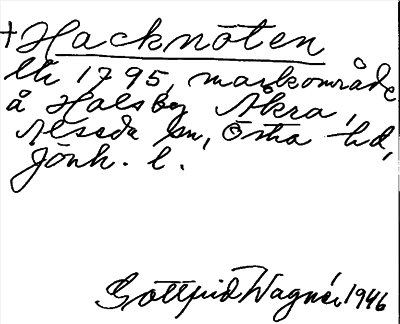 + Hacknöten
lk 1795, markområde
å Halsby Åkra,
Alseda sn, Östra hd,
Jönk. l.
Gottfrid Wagnér 1946